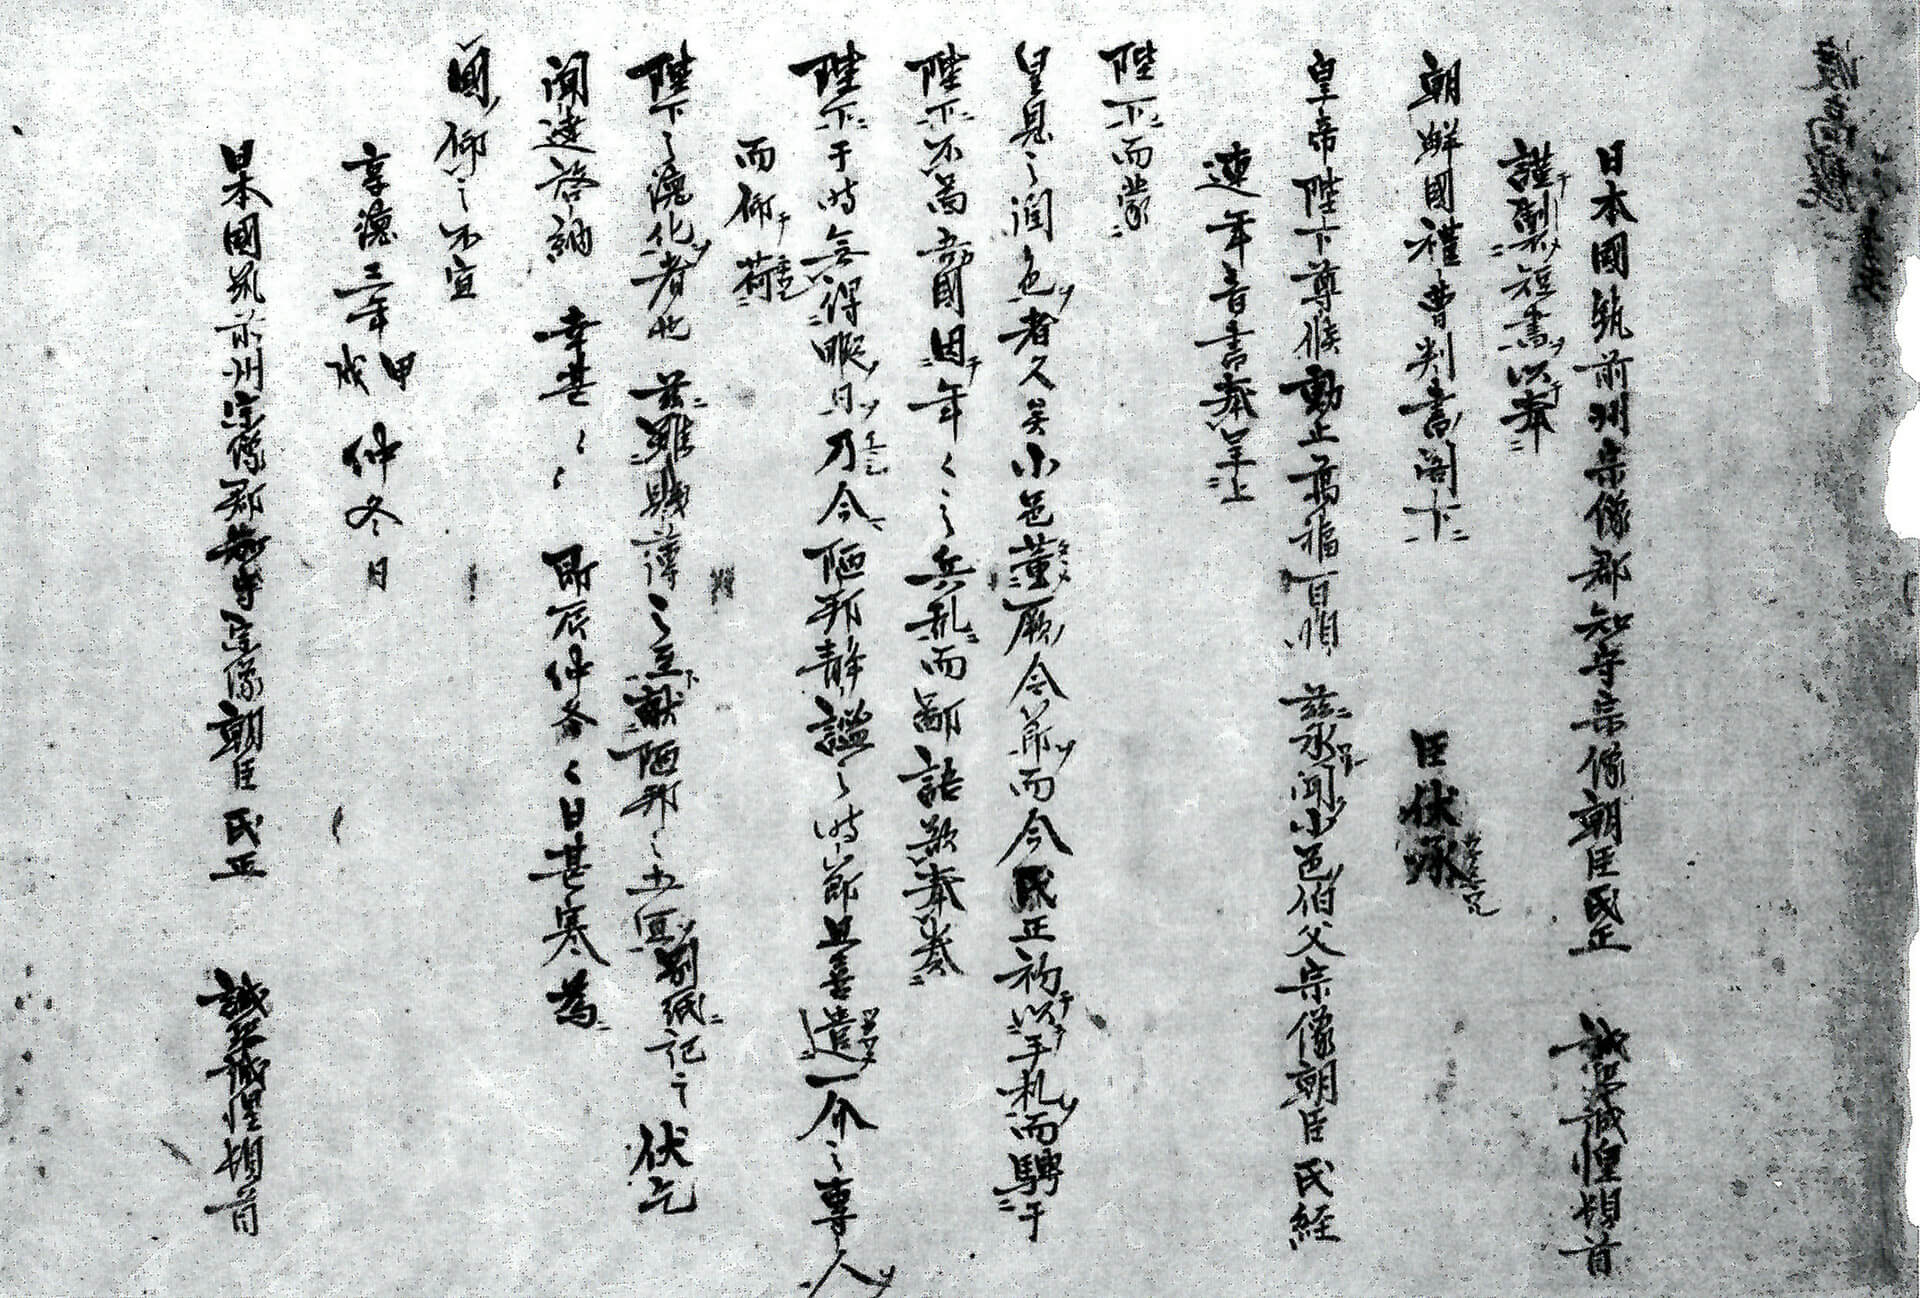 日本國筑前州宗像郡知守宗像朝臣氏正　誠恐誠惶頓首
謹製短書以奉
朝鮮國禮曹判書閣下　臣伏承
皇帝陛下尊候動止萬福百順　茲承聞小邑伯父宗像朝臣氏経
連年音書奉呈上
陛下而蒙
皇恩之潤色者久矣小邑董厥令節而今氏正初以手札而騁于
陛下不啚吾國因年〱之兵乱而鄙語欵奉
陛下于時無得暇日乃今陋邦静謐之時節且喜遣一介之専人
而仰荷
陛下之徳化者也　茲雖賎薄之献陋邦之土宜別紙記之　伏乞
聞達啓納　幸甚〱　昴辰仲冬〱日甚寒為
國仰之不宣
享徳三年甲戌仲冬日
日本國筑前州宗像郡知守宗像朝臣氏正　誠恐誠惶頓首